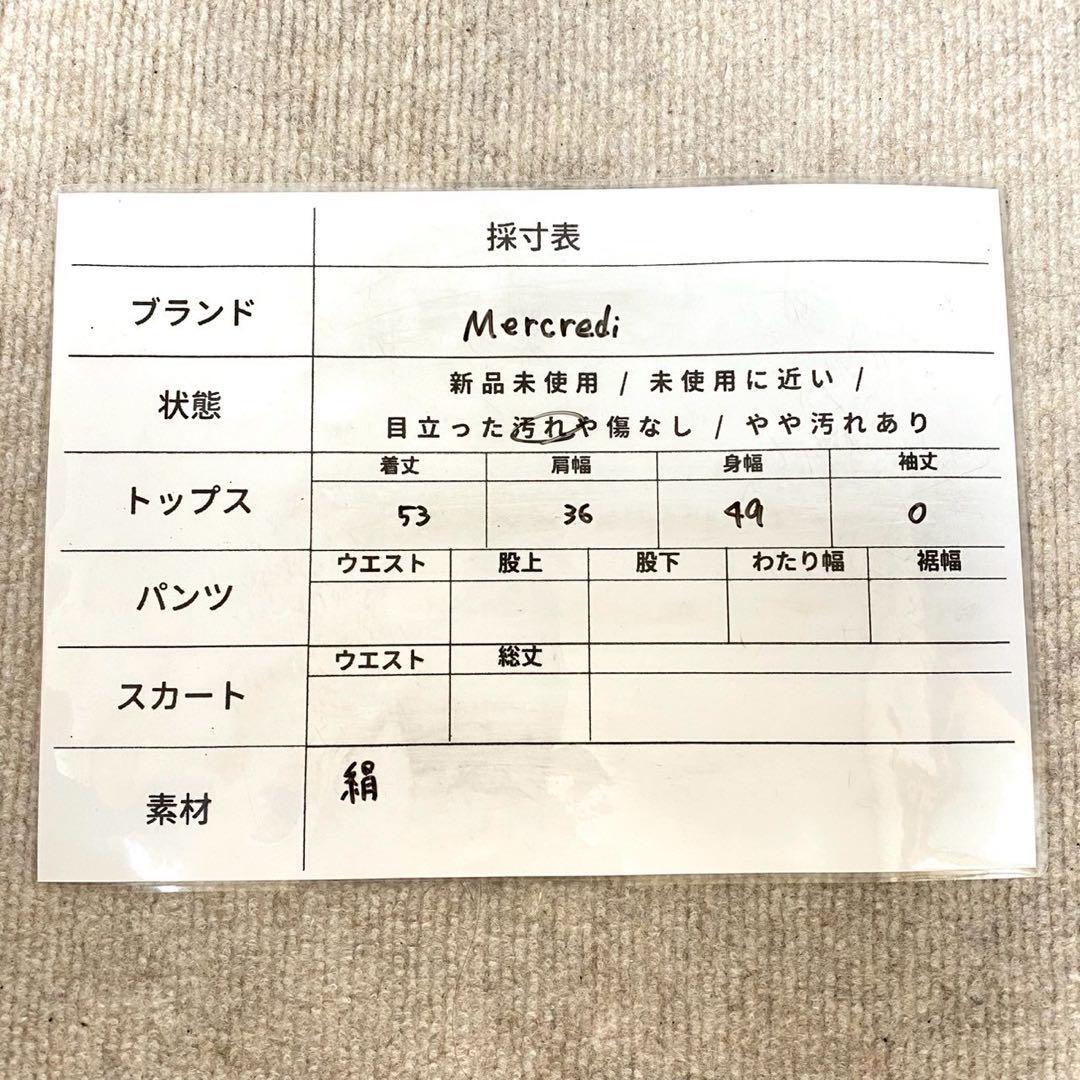 採寸表
ブランド Mercredi
状態 新品未使用 / 未使用に近い /
目立った汚れや傷なし / やや汚れあり
トップス 着丈 肩幅 身幅 袖丈
53 36 49 0
パンツ ウエスト 股上 股下 わたり幅 裾幅
スカート ウエスト 総丈
素材 絹